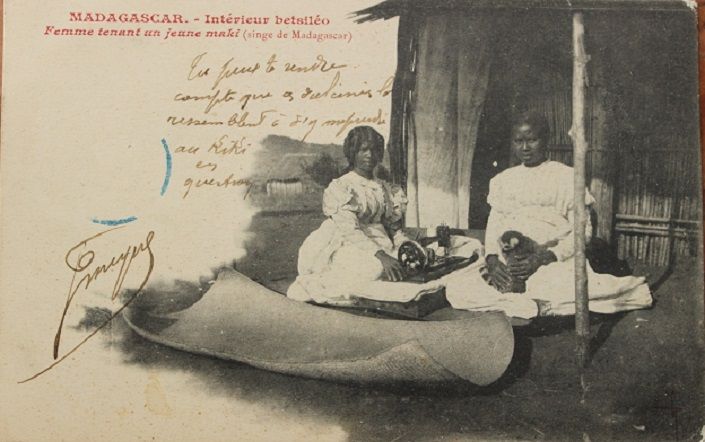 MADAGASCAR. - Intérieur betsiléo
Femme tenant un jeune maki (singe de Madagascar)
Tu peux te rendre
compte que
ressemblent à s'y méprendre
au Kiki
en
question